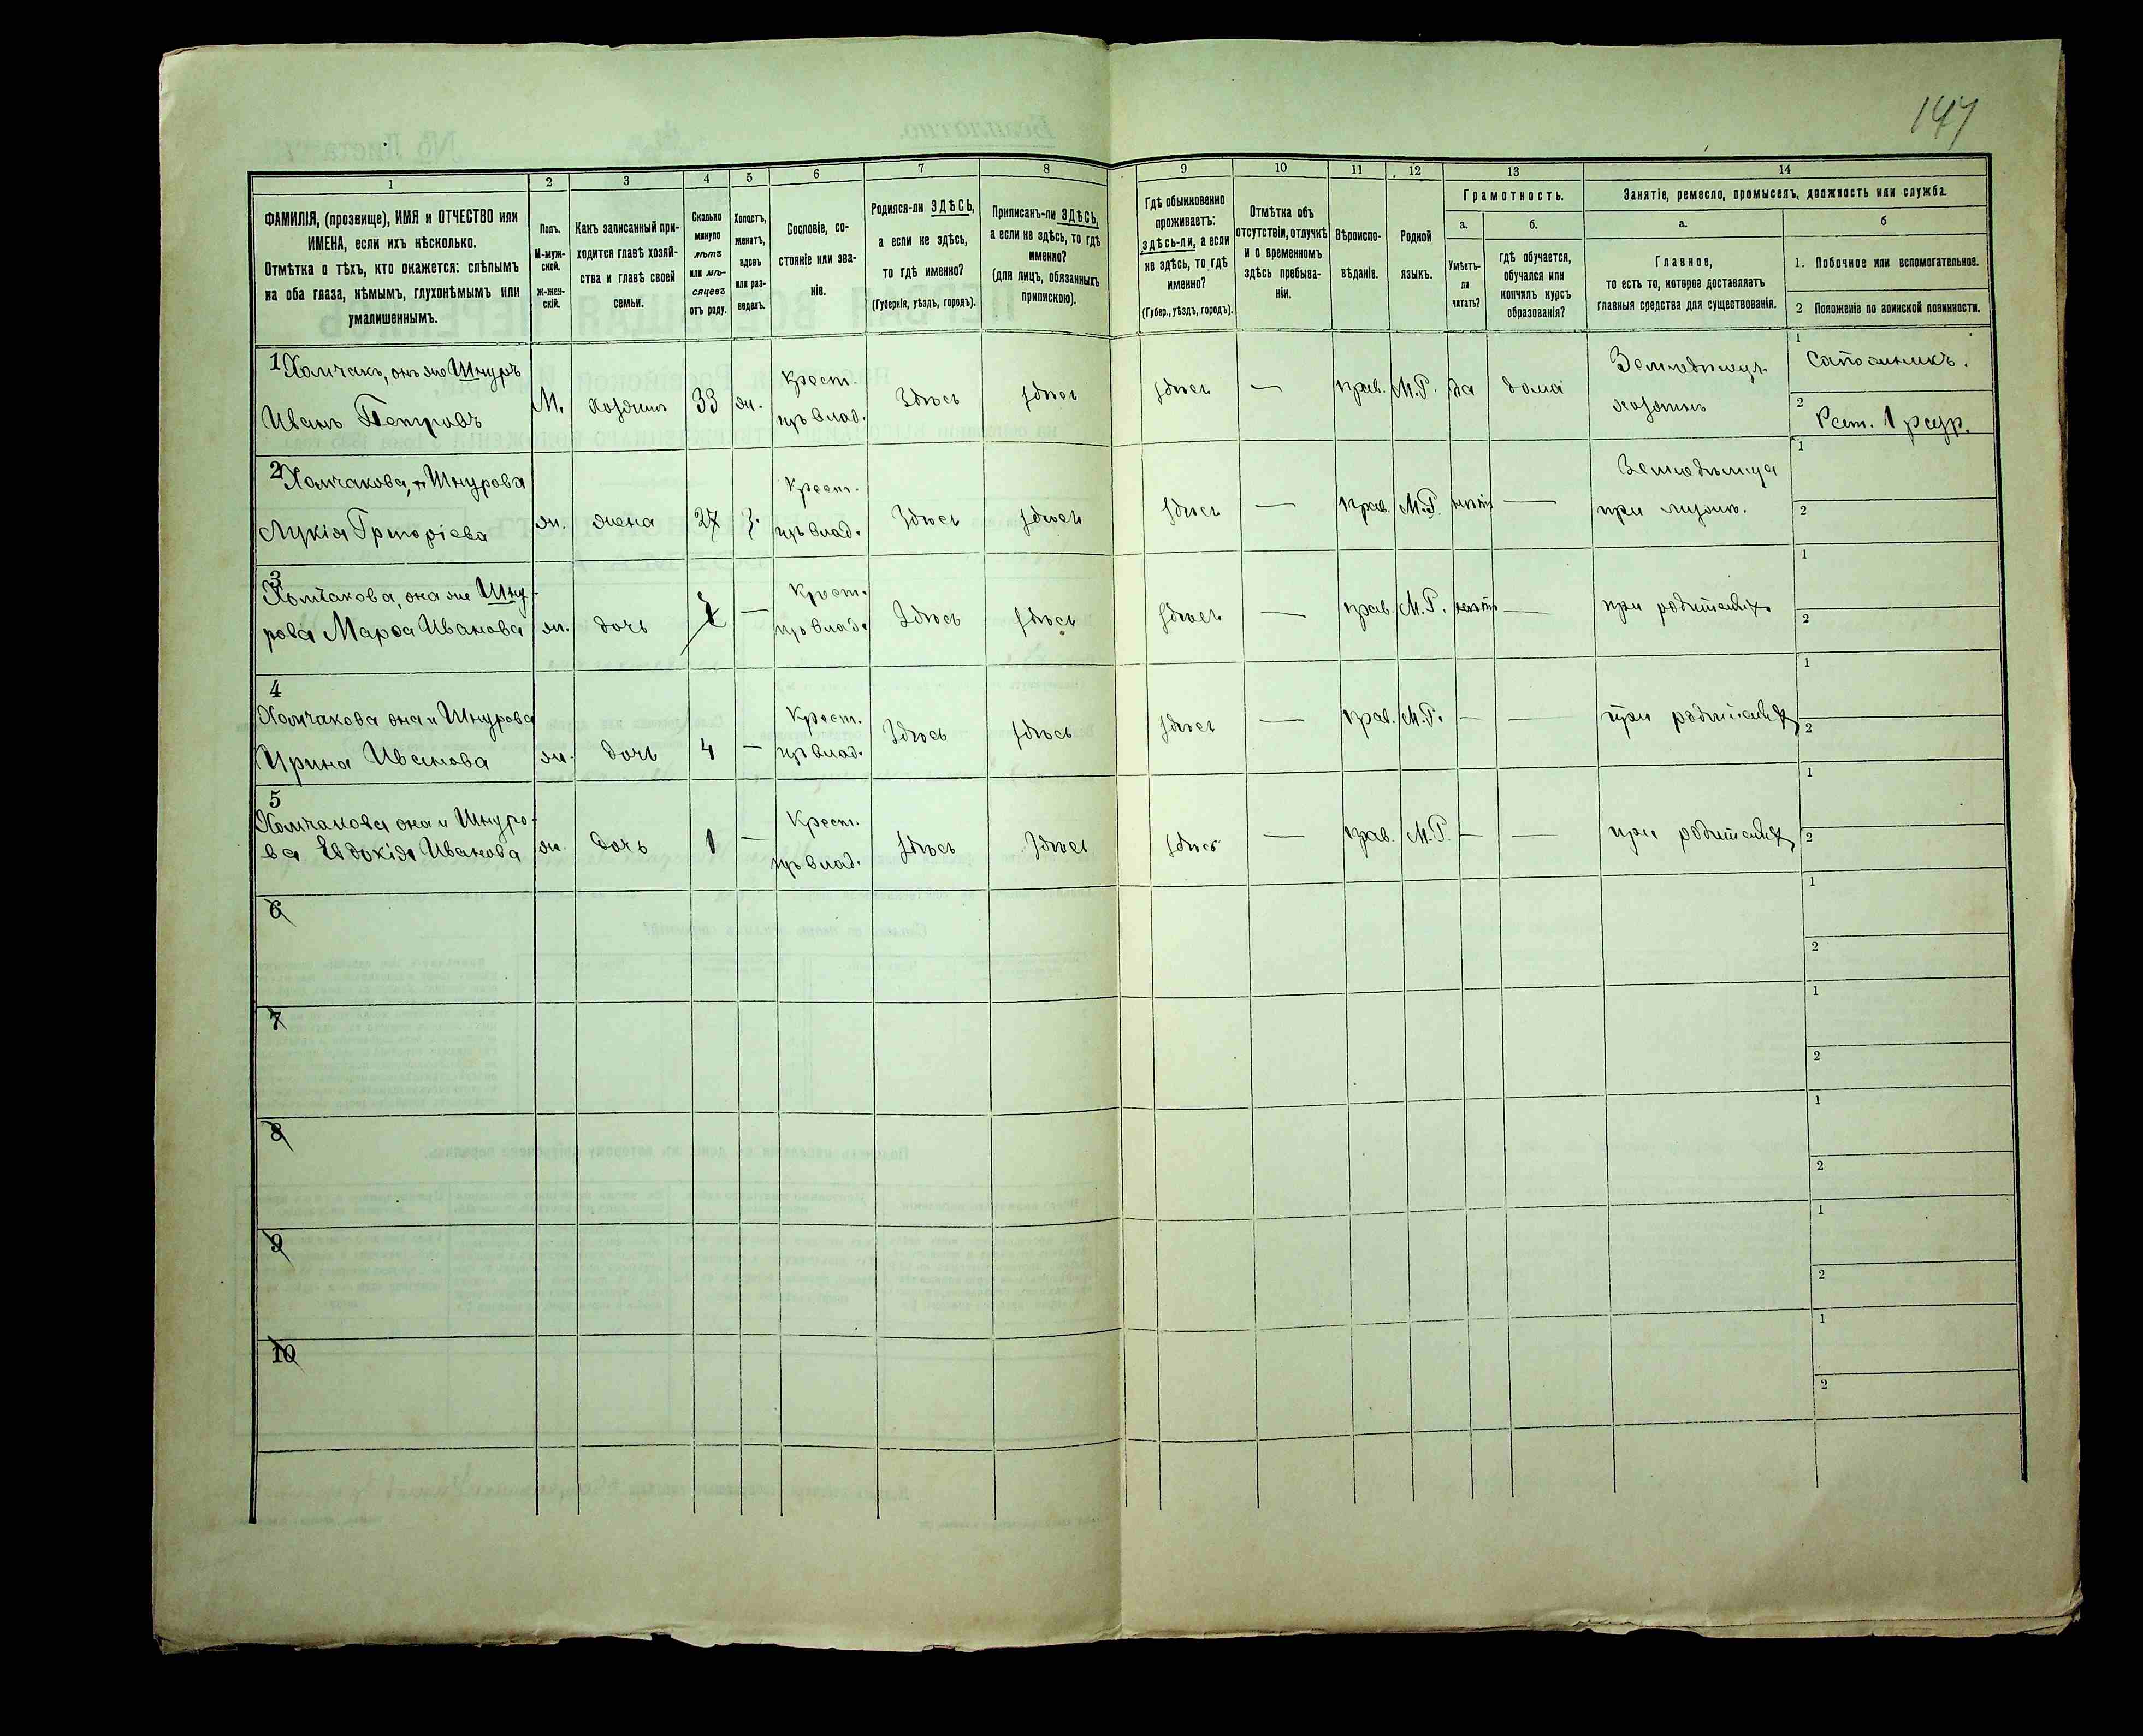 147
1 2 3 4 5 6 7 8 9 10 11 12 13 14
ФАМИЛІЯ, (прозвище), ИМЯ и ОТЧЕСТВО или
ИМЕНА, если ихъ нѣсколько.
Отмѣтка о тѣхъ, кто окажется: слѣпымъ
на оба глаза, нѣмымъ, глухонѣмымъ или
умалишеннымъ.
Полъ.
М-муж-
ской.
ж-жен-
скій.
Какъ записанный при-
ходится главѣ хозяй-
ства и главѣ своей
семьи.
Сколько
минуло
лѣтъ
или мѣ-
сяцевъ
отъ роду.
Холостъ,
женатъ,
вдовъ
или раз-
веденъ.
Сословіе, со-
стояніе или зва-
ніе.
Родился-ли ЗДѢСЬ,
а если не здѣсь,
то гдѣ именно?
(Губернія, уѣздъ, городъ).
Приписанъ-ли ЗДѢСЬ,
а если не здѣсь, то гдѣ
именно?
(для лицъ, обязанныхъ
припискою).
Гдѣ обыкновенно
проживаетъ:
здѣсь-ли, а если
не здѣсь, то гдѣ
именно?
(Губер., уѣздъ, городъ).
Отмѣтка объ
отсутствіи, отлучкѣ
и о временномъ
здѣсь пребыва-
ніи.
Вѣроиспо-
вѣданіе.
Родной
языкъ.
Грамотность.
а.
Умѣетъ-
ли
читать?
б.
гдѣ обучается,
обучался или
кончилъ курсъ
образованія?
Занятіе, ремесло, промыселъ, должность или служба.
а.
Главное,
то есть то, которое доставляетъ
главныя средства для существованія.
б
1. Побочное или вспомогательное.
2 Положеніе по воинской повинности.
1 Хомчакъ, онъ же Шнуръ
Иванъ Петровъ
М.
хозяинъ
33
ж.
Крест.
изъ влад.
Здѣсь
здѣсь
здѣсь
—
прав.
М.Р.
да
дома
Земледѣлецъ
хозяинъ
1 Сапожникъ.
2 Рат. 1 разр.
2 Хомчакова, и Шнурова
Лукія Григоріева
ж.
жена
27
з.
Крест.
изъ влад.
Здѣсь
здѣсь
здѣсь
—
прав.
М.Р.
нѣтъ
—
Земледѣлица
при мужѣ.
1
2
3 Хомчакова, она же Шну-
рова Марѳа Иванова
ж.
дочь
—
Крест.
изъ влад.
Здѣсь
здѣсь
здѣсь
—
прав.
М.Р.
нѣтъ
—
при родителяхъ
1
2
4
Хомчакова она и Шнурова
Ирина Иванова
ж.
дочь
4
—
Крест.
изъ влад.
Здѣсь
здѣсь
здѣсь
—
прав.
М.Р.
—
—
при родителяхъ
1
2
5
Хомчакова она и Шнуро-
ва Евдокія Иванова
ж.
дочь
1
—
Крест.
изъ влад.
здѣсь
здѣсь
здѣсь
—
прав.
М.Р.
—
—
при родителяхъ
1
2
6
1
2
7
1
2
8
1
2
9
1
2
10
1
2